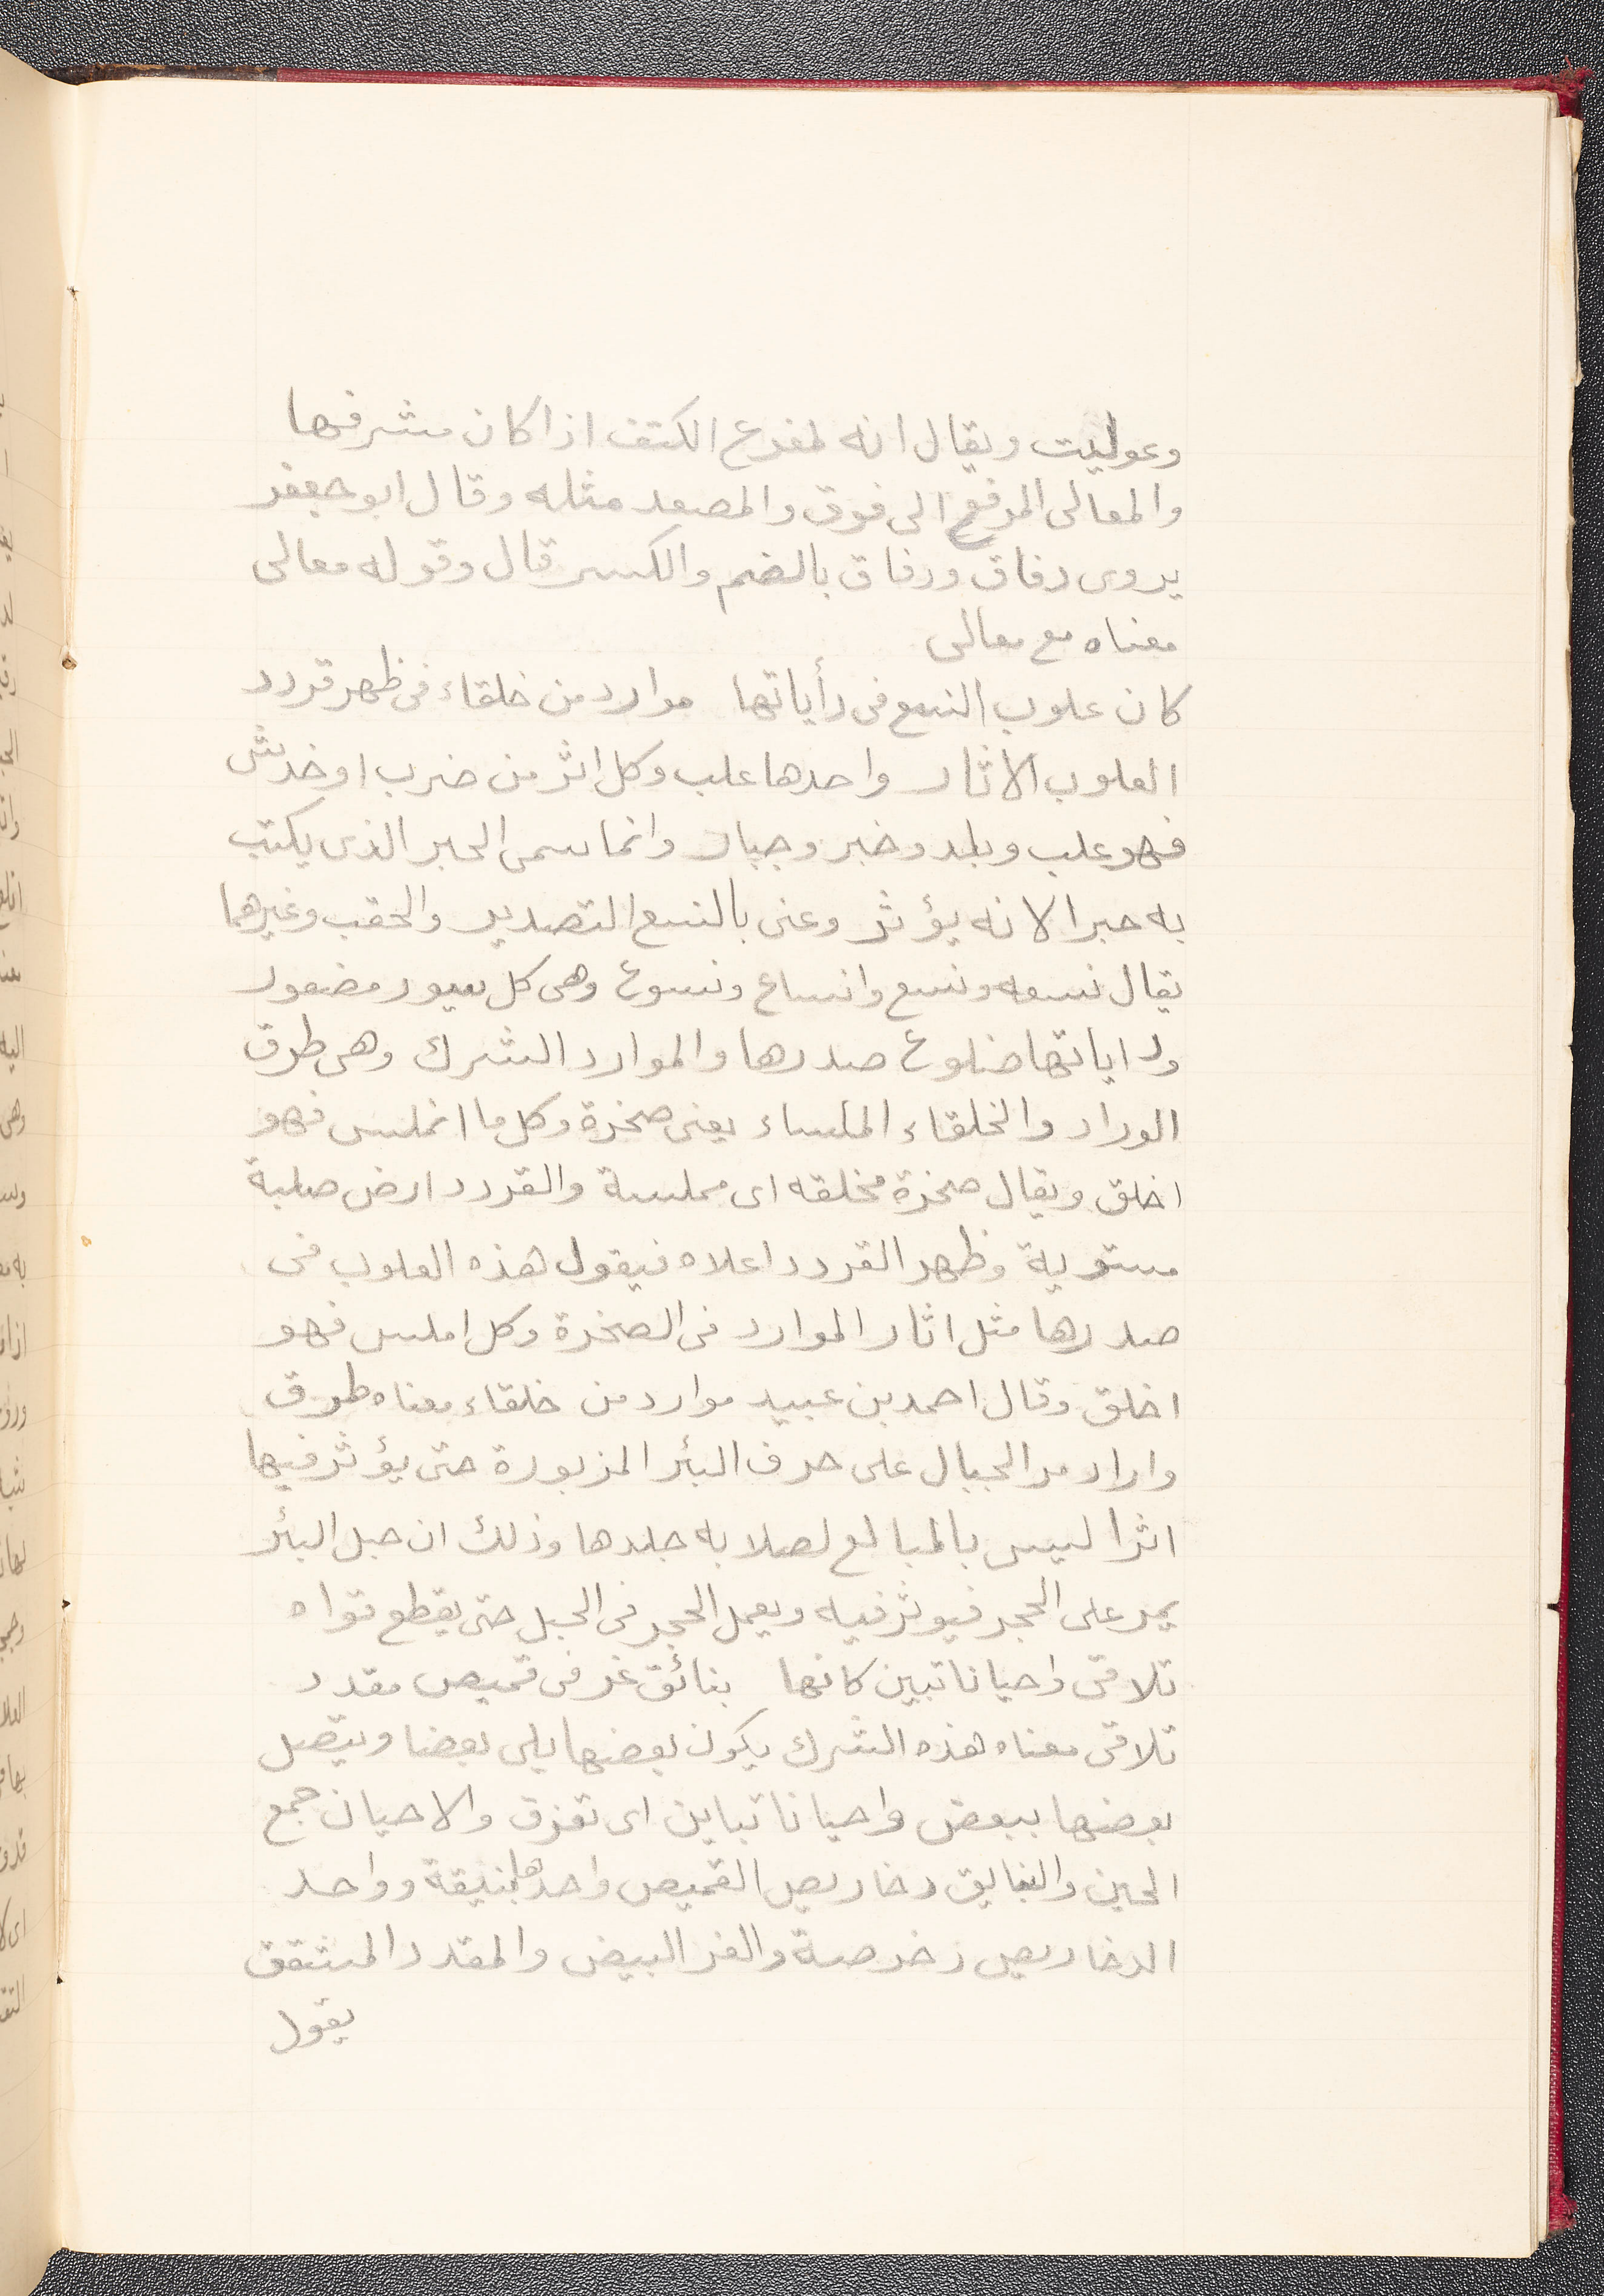 وعوليت ويقال انه لمفرع الكتف اذا كان مشرفها
والمعالى المرفع الى فوق والمصعد مثله وقال ابو جعفر
يروى دفاق ودفاق بالضم والكسر قال وقوله معالى
معناه مع معالى
كان علوب النسع فى دأياتها موارد من خلقاء فى ظهر قردد
العلوب الاثار واحدها علب وكل اثر من ضرب او خدش
فهو علب وبلد وخبر وجبار وانما سمى الحبر الذى يكتب
به حبرا لانه يؤثر وعنى بالنسع التصدير والحقب وغيرهما
يقال نسعه ونسع وانساع ونسوع وهى كل سيور مضفور
ودايا تها ضلوع صدرها والموارد الشرك وهى طرق
الوراد والخلقاء الملساء يعنى صخرة وكل ما انملس فهو
اخلق ويقال صخرة مخلقه اى مملسة والقردد ارض صلبة
مستوية وظهر القردد اعلاه فيقول هذه العلوب فى
صدرها مثل اثار الموارد فى الصخرة وكل املس فهو
اخلق وقال احمد بن عبيد موارد من خلقاء معناه طرق
واراد مر الحبال على حرف البئر المزبورة حتى يؤثر فيها
اثرا ليس بالمبالع لصلابه جلدها وذلك ان حبل البئر
يمر على الحجر فيوثر فيه ويعمل الحجر فى الحبل حتى يقطع قواه
تلاقى واحيانا تبين كانها بنائق غر فى قميص مقدد
تلاقى معناه هذه الشرك يكون بعضها يلى بعضا ويتصل
بعضها ببعض واحيانا تباين اى تفرق والاحيان جمع
الحين والبنايق دخاريص القميص واحدها بنيقة وواحد
الدخاريص دخرصة والغر البيض والمقدد المشقق
يقول